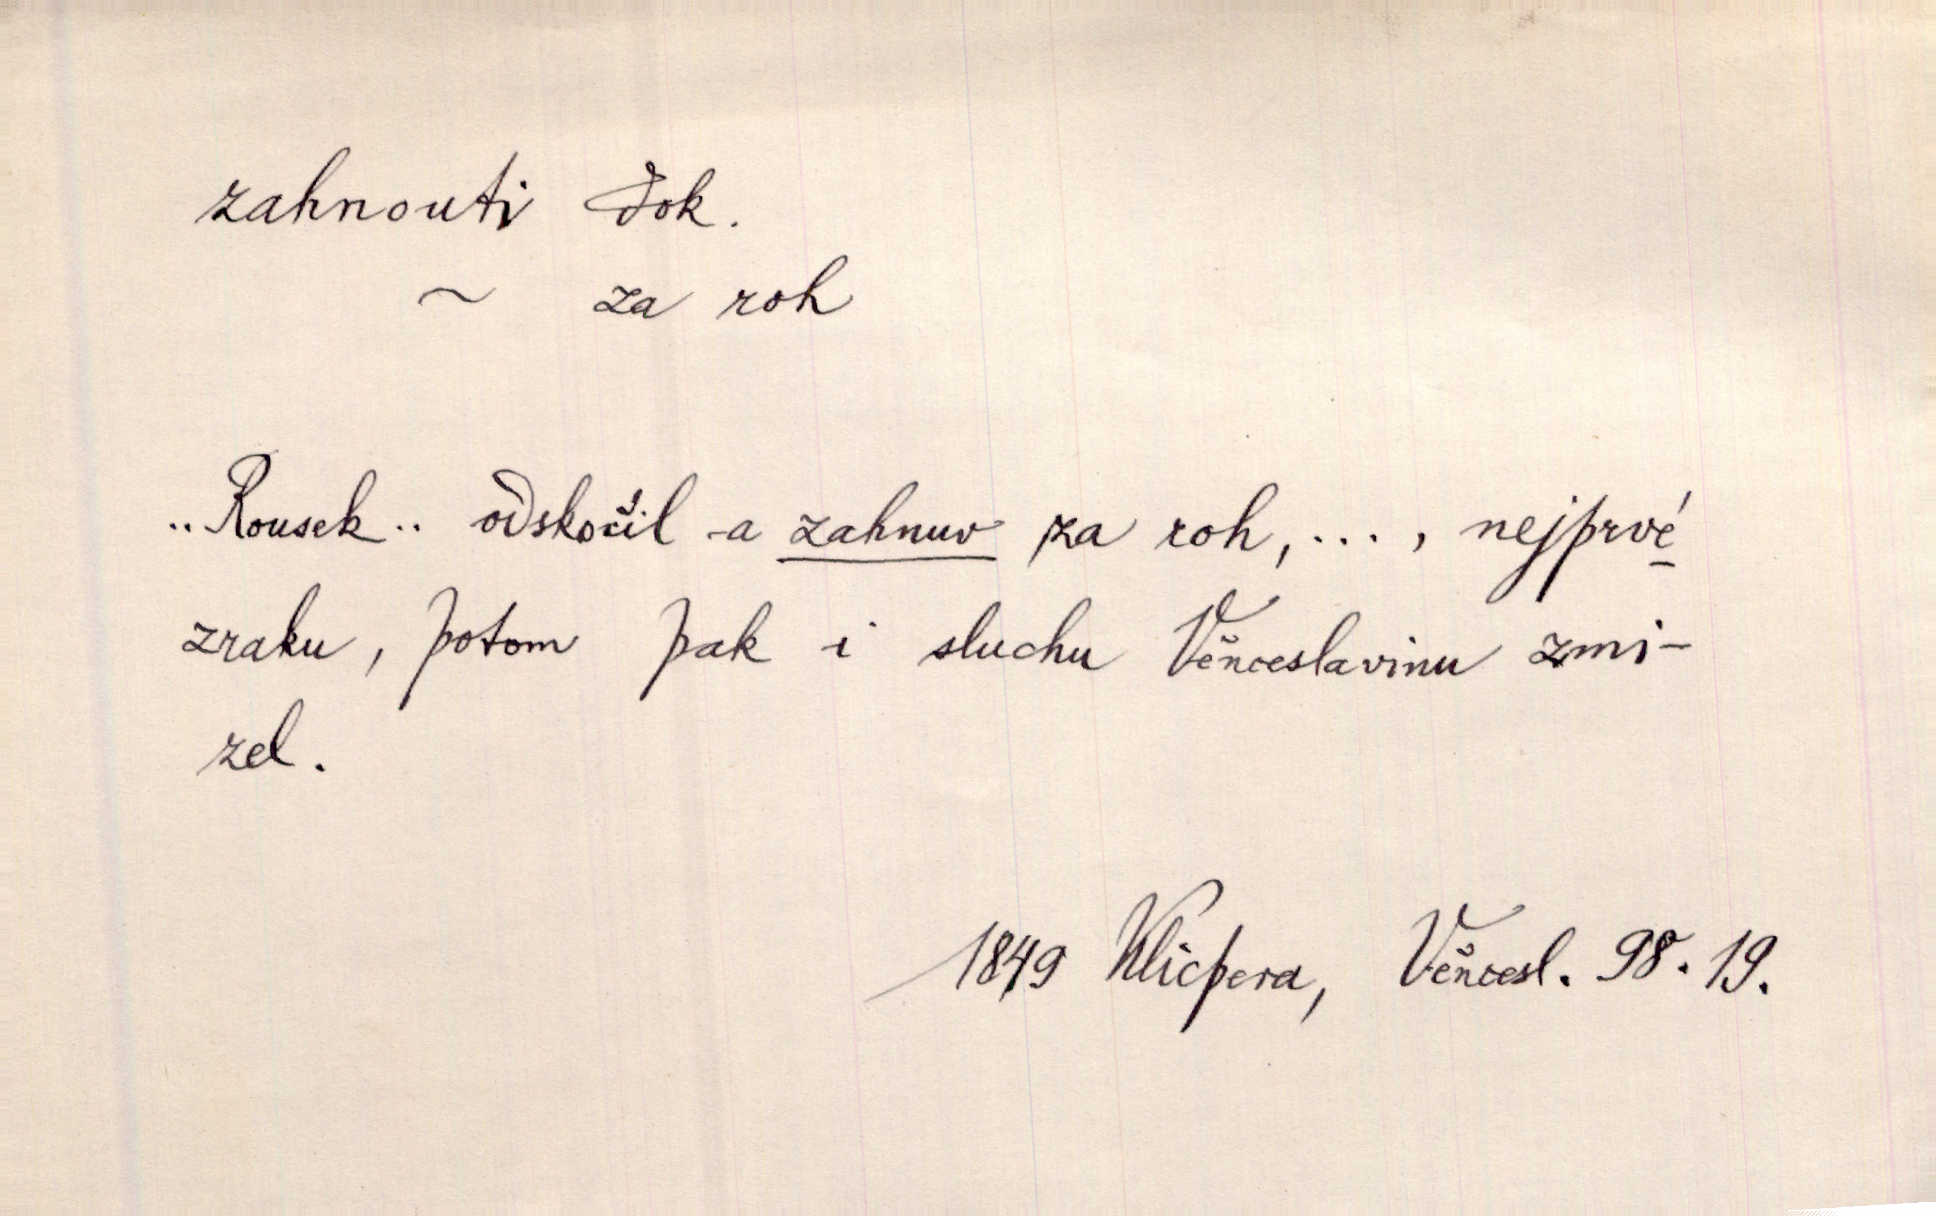 zahnouti dok.
~ za roh
.. Rousek .. odskočil a zahnuv za roh, ... , nejprvé
zraku, potom pak i sluchu Věnceslavinu zmi-
zel.
1849 Klicpera, Věncesl. 98. 19.